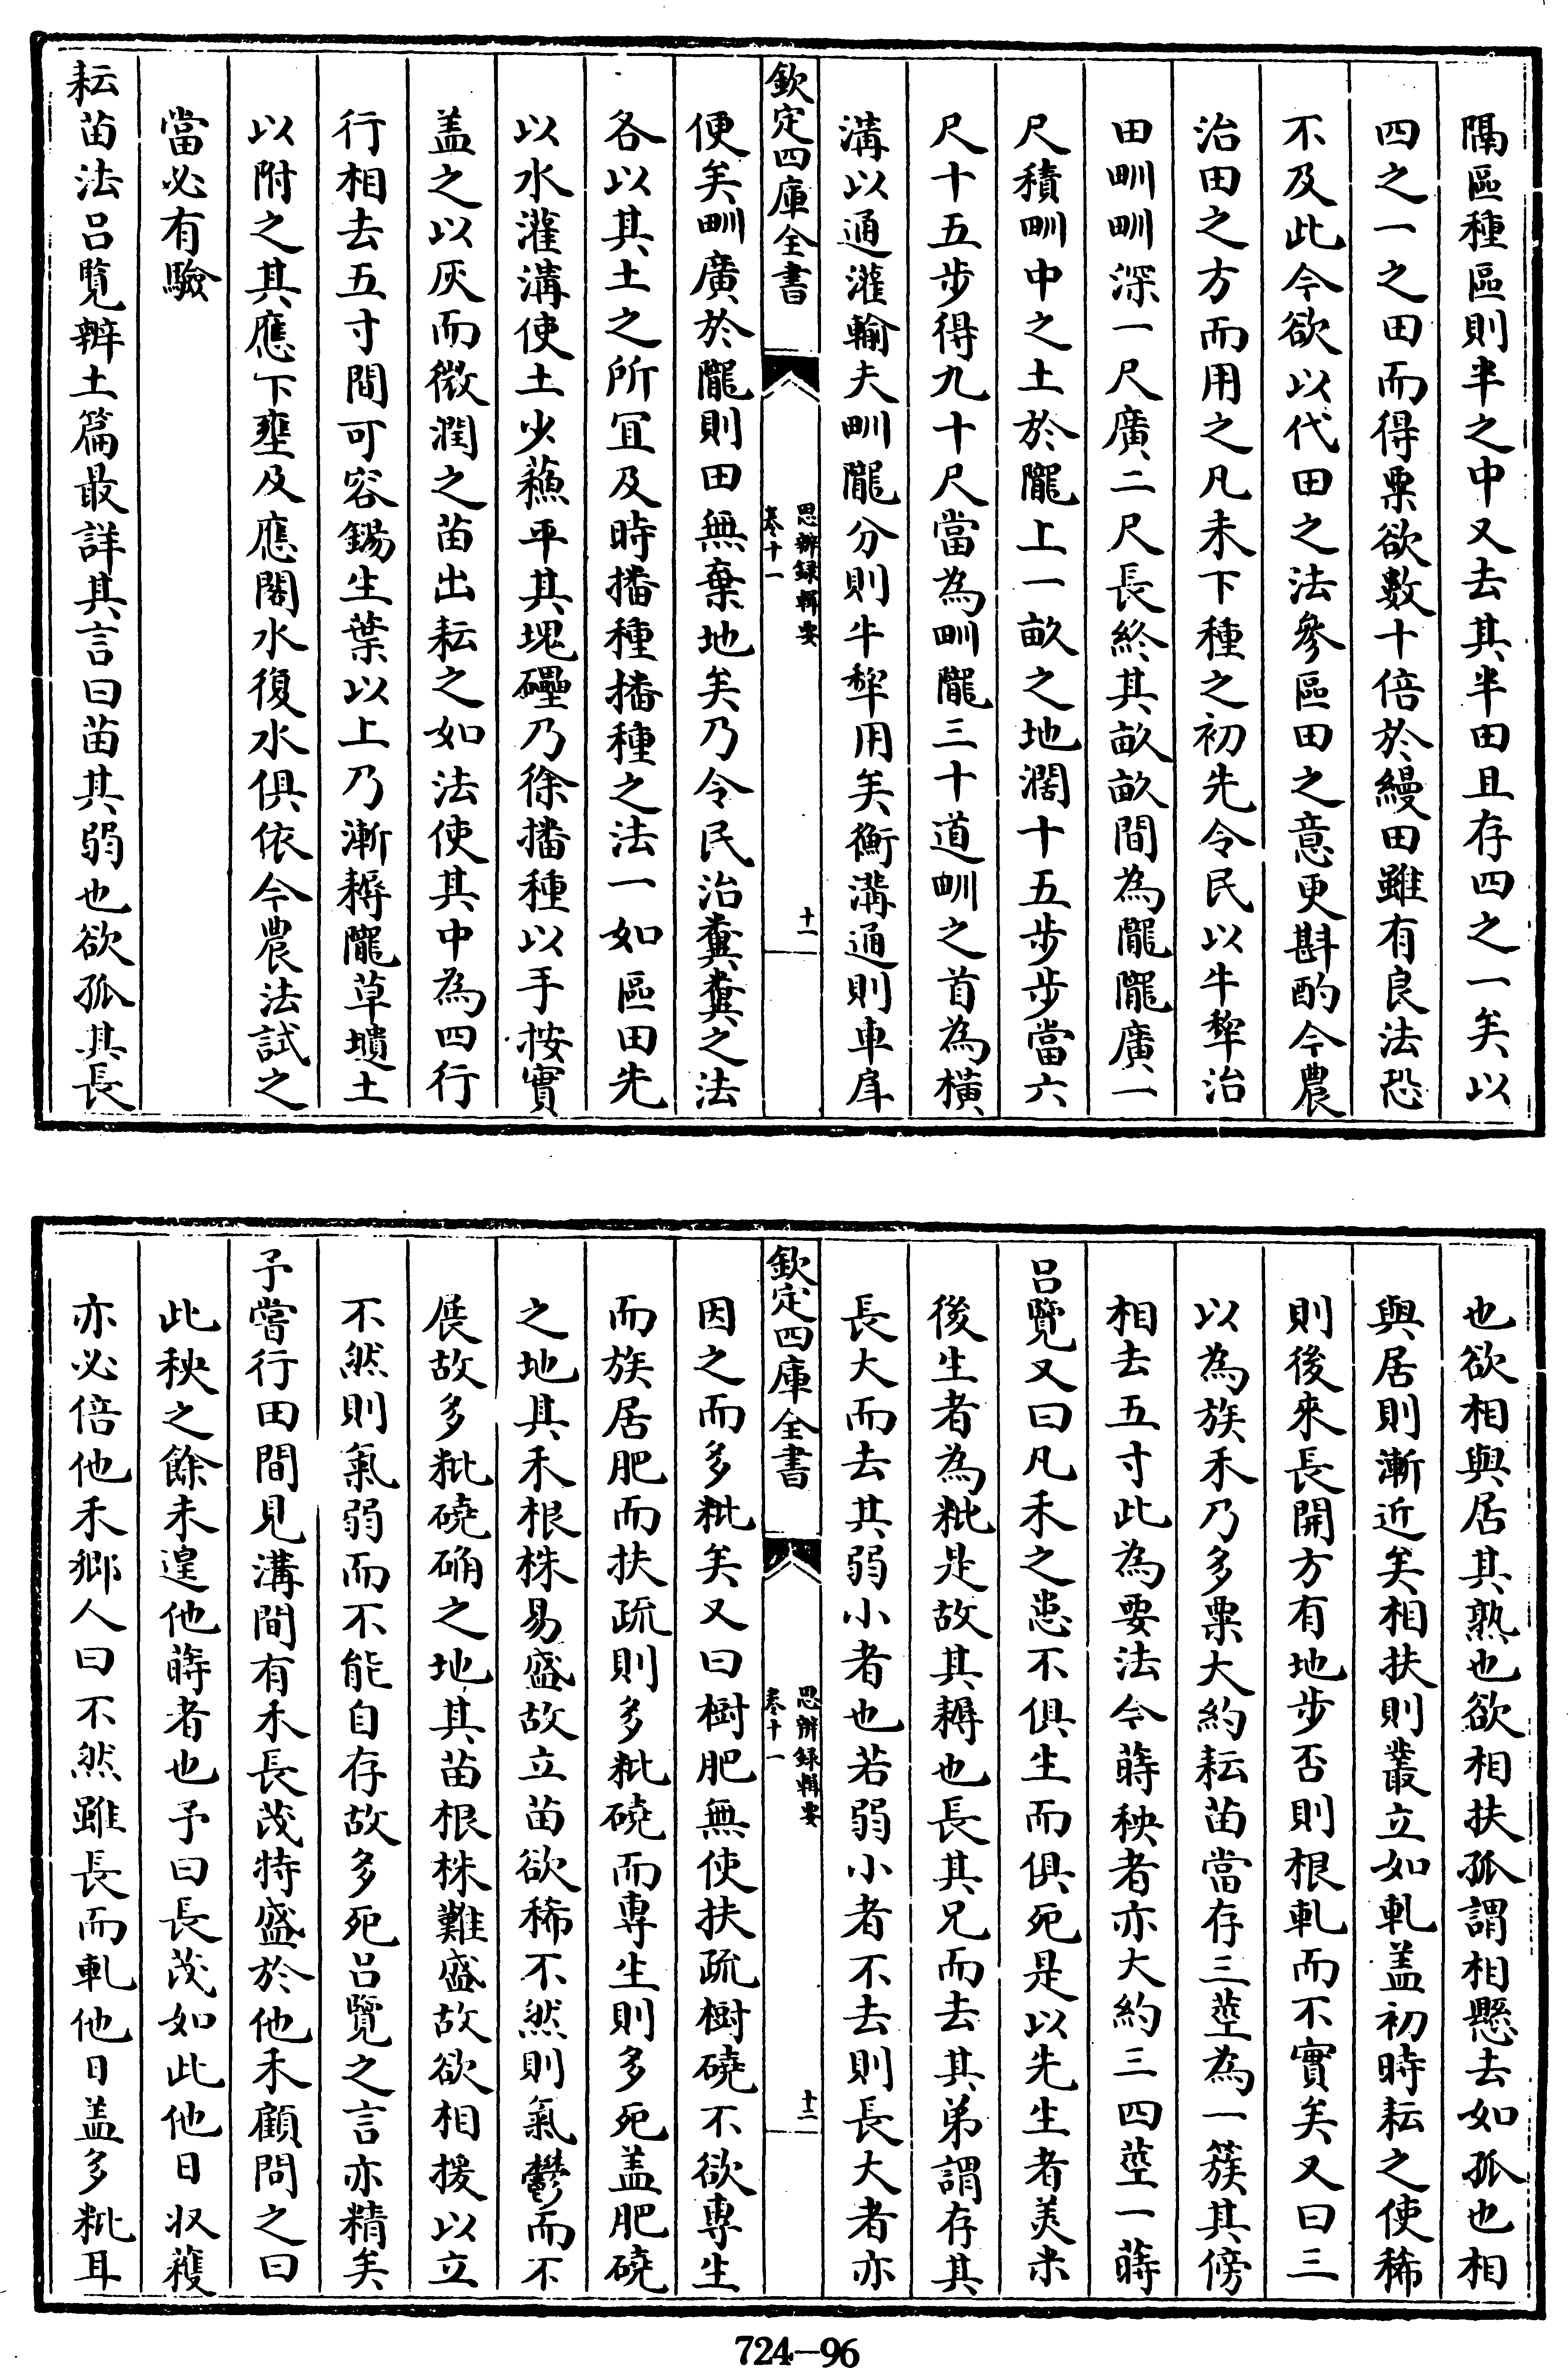 隔區種區則半之中又去其半田且存四之一矣以
四之一之田而得粟欲數十倍於縵田雖有良法恐
不及此今欲以代田之法參區田之意更斟酌今農
治田之方而用之凡未下種之初先令民以牛犂治
田甽甽深一尺廣二尺長終其畝畝間為隴隴廣一
尺積甽中之土於隴上一畝之地濶十五步步當六
尺十五步得九十尺當為甽隴三十道甽之首為橫
溝以通灌輸夫甽隴分則牛犂用矣衡溝通則車戽
欽定四庫全書
思辨録輯要
卷十一
十一
便矣甽廣於隴則田無棄地矣乃令民治糞糞之法
各以其土之所冝及時播種播種之法一如區田先
以水灌溝使土少蘓平其塊礧乃徐播種以手按實
盖之以灰而微潤之苗出耘之如法使其中為四行
行相去五寸間可容鍚生葉以上乃漸耨隴草壝土
以附之其應下壅及應閣水復水俱依今農法試之
當必有驗
耘苗法吕覽辨土篇最詳其言曰苗其弱也欲孤其長
也欲相與居其熟也欲相扶孤謂相懸去如孤也相
與居則漸近矣相扶則叢立如軋盖初時耘之使稀
則後來長開方有地步否則根軋而不實矣又曰三
以為族禾乃多粟大約耘苗當存三莖為一簇其傍
相去五寸此為要法今蒔秧者亦大約三四莖一蒔
吕覽又曰凡禾之患不俱生而俱死是以先生者美米
後生者為粃是故其耨也長其兄而去其弟謂存其
長大而去其弱小者也若弱小者不去則長大者亦
欽定四庫全書
思辨録輯要
卷十一
十二
因之而多粃矣又曰樹肥無使扶疏樹磽不欲専生
而族居肥而扶疏則多粃磽而専生則多死盖肥磽
之地其禾根株易盛故立苗欲稀不然則氣鬱而不
展故多粃磽确之地其苗根株難盛故欲相援以立
不然則氣弱而不能自存故多死吕覽之言亦精矣
予嘗行田間見溝間有禾長茂特盛於他禾顧問之曰
此秧之餘未遑他蒔者也予曰長茂如此他日収穫
亦必倍他禾鄉人曰不然雖長而軋他日盖多粃耳
724-96